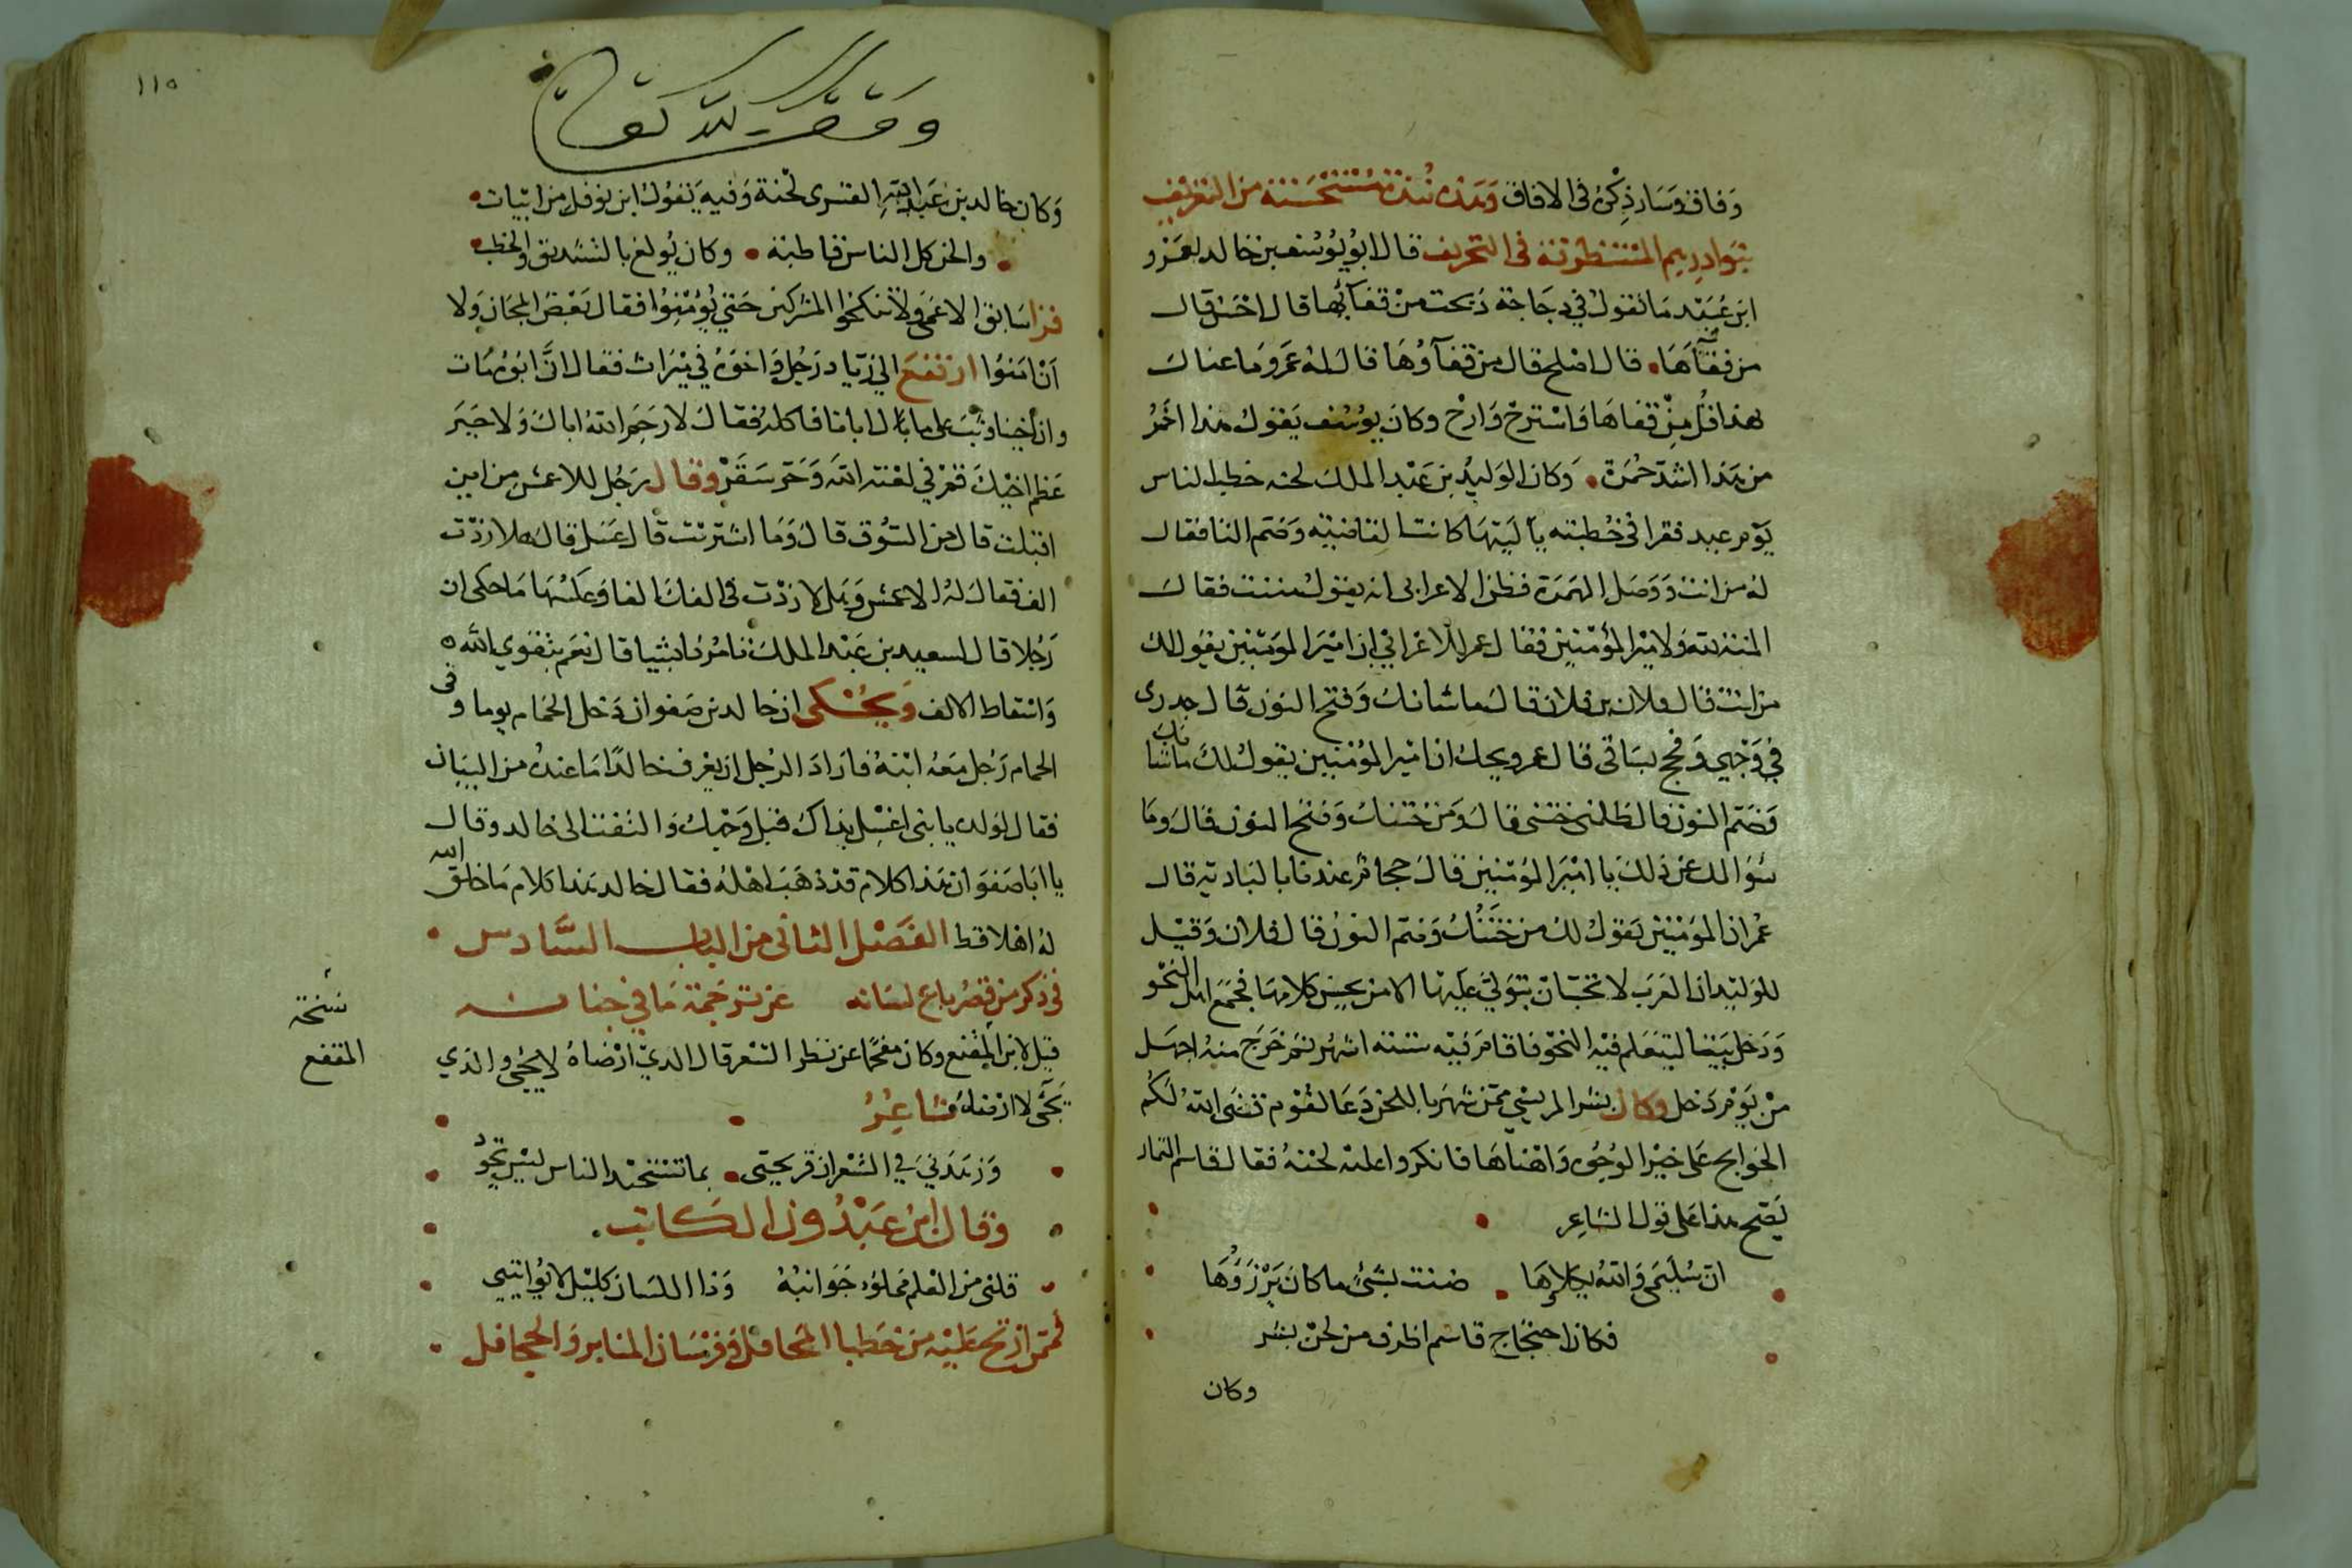 وفاق وسار ذكره في الافاق وهذه نبذة مستحسنة من التعريف
بنوادرهم المستظرفة في التحريف قال ابو يوسف بن خالد لعمرو
ابن عبيد ما تقول في دجاجة ذبحت من قفآئها قال احسن قال
من قفآءها قال اصلح قال من قفآؤها قال له عمرو ما عناك
بهذا قل من قفاها واسترح وارح وكان يوسف يقول هذا احمر
من هذا اشد حمرة وكان الوليد بن عبد الملك لحنه خطب الناس
يوم عيد فقرا في خطبته يا ليتها كانت القاضيه وضم التا فقال
له من انت ووصل الهمزة فظن الاعرابي انه يقول مننت فقال
المنة لله ولامير المؤمنين فقال عمر للاعرابي ان امير المومنين يقول لك
من انت فقال فلان بن فلان قال ما شانك وفتح النون قال جدري
في وجهي وفحج بساقي قال عمر ويحك ان امير المؤمنين يقول لك ما شانك
وضم النون قال ظلمني ختني قال ومن ختنك وفتح النون قال وما
سؤالك عن ذلك يا امير المؤمنين قال حجام عندنا بالبادية قال
عمر ان المؤمنين يقول لك من ختنك وضم النون قال فلان وقيل
للوليد ان العرب لا تحب ان يتولى عليها الا من يحسن كلامها فجمع اهل النحو
ودخل بيتا ليتعلم فيه النحو فاقام فيه ستة اشهر ثم خرج منه اجهل
من يوم دخل وكان بشر المريسي ممن شهر باللحن دعا لقوم قضى الله لكم
الحوايج على خير الوجوه واهناها فانكروا عليه لحنه فقال قاسم التمار
يصح هذا على قول الشاعر
ان سليمى والله يكلاها ضنت بشيء ما كان يرزؤها
فكان احتجاج قاسم اظرف من لحن بشر
وكان
١١٥
وقف لله تعالى
وكان خالد بن عبد الله القسري لحنة وفيه يقول ابن نوفل من ابيات
والحن كل الناس قاطبة وكان يولع بالتشديق والخطب
قرا سابق الاعمى ولا تنكحوا المشركين حتى يؤمنوا فقال بعض المجان ولا
ان امنوا ارتفع الى زياد رجل واخوه في ميراث فقال ان ابونا مات
وان اخينا وثب على مال ابانا فاكله فقال لا رحم الله اباك ولا جبر
عظم اخيك قم في لعنة الله وحر سقر وقال رجل للاعمش من اين
اقبلت قال من السوق قال وما اشتريت قال عسل قال هلا زدت
الف فقال له الاعمش وهلا زدت في الفك الفا وعكسها ما حكى ان
رجلا قال لسعيد بن عبد الملك تامر نا بشيا قال نعم بتقوى الله
واسقاط الالف ويحكى ان خالد بن صفوان دخل الحمام يوما وفي
الحمام رجل معه ابنه فاراد الرجل ان يعرف خالدا ما عنده من البيان
فقال لولده يا بني اغسل يداك قبل وجهك والتفت الى خالد وقال
يا ابا صفوان هذا كلام قد ذهب اهله فقال خالد هذا كلام ما خلق الله
له اهلا قط الفصل الثاني من الباب السادس
في ذكر من قصر باع لسانه عن ترجمة ما في جنانه
قيل لابن المقنع وكان مفحما عن نظم الشعر قال الذي ارضاه لا يجي والذي
يجي لا ارضاه شاعر
نسخة
المقفع
وزهدني في الشعر ان قريحتي بما تستجيد الناس ليس تجود
وقال ابن عبدون الكاتب
قلبي من العلم مملوء جوانبه وذا اللسان كليل لا يواتيني
فممن ارتج عليه من خطبا المحافل وفرسان المنابر والجحافل